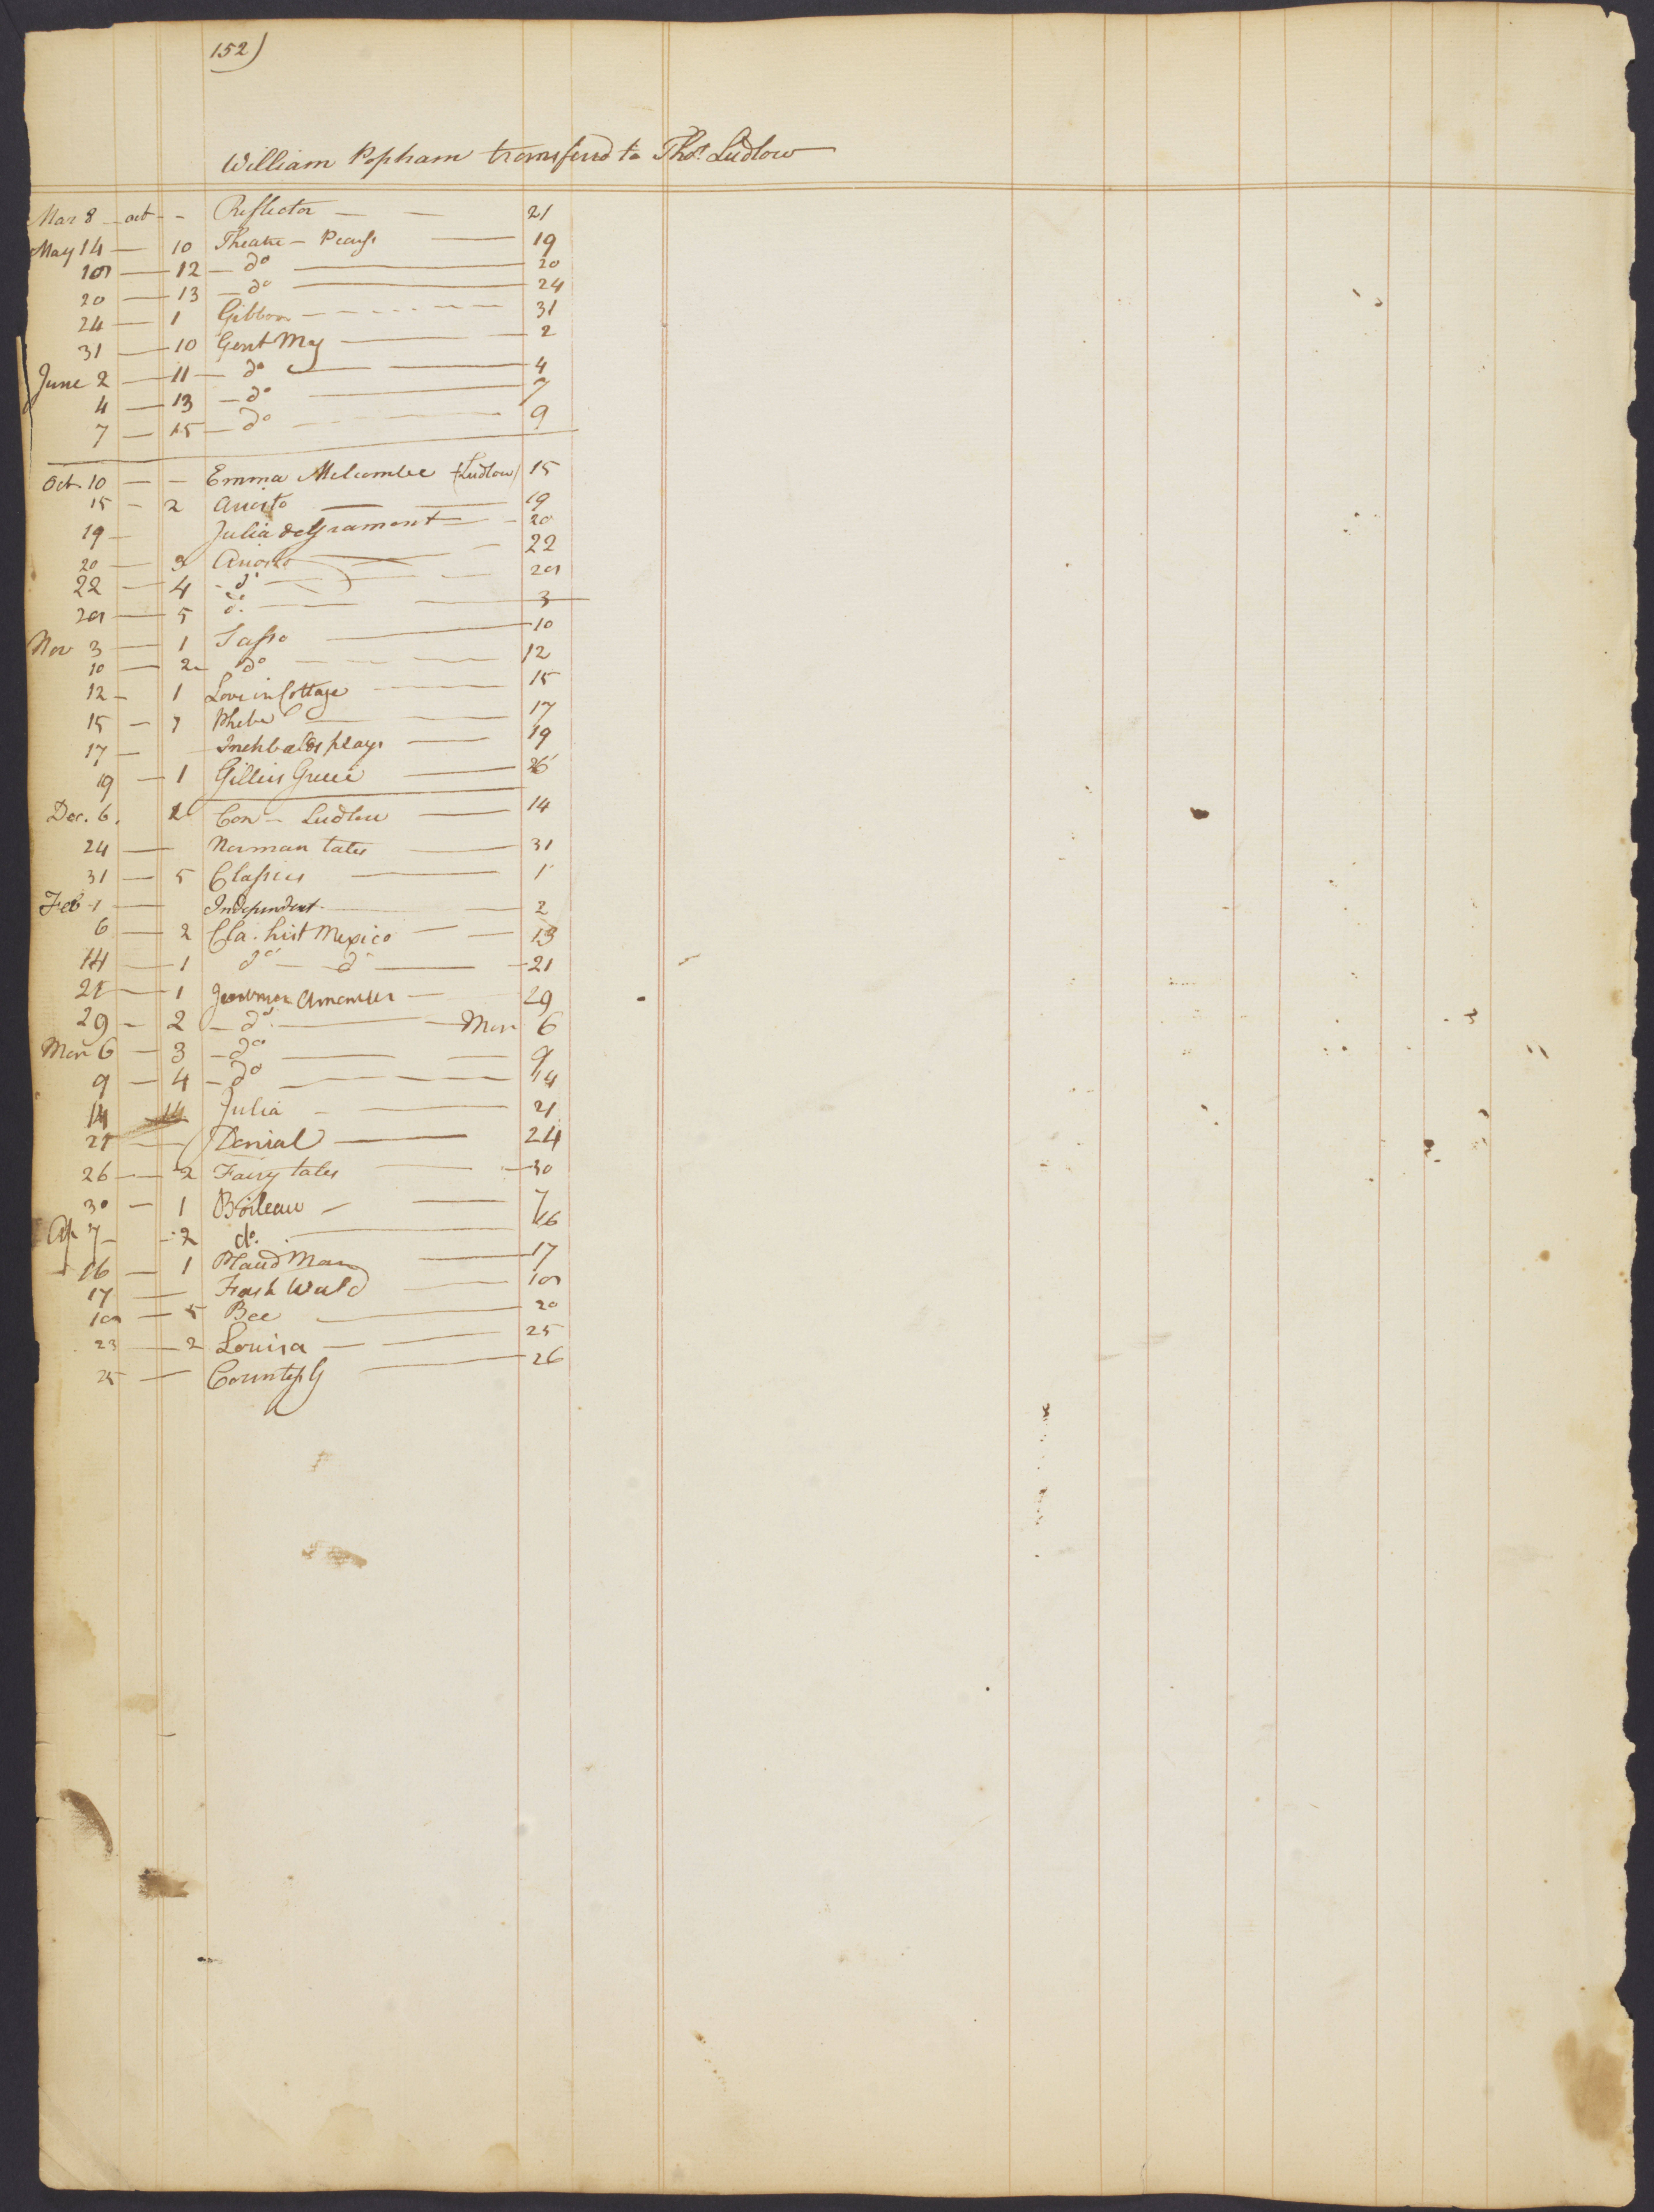 152)
William Popham transferd to Thos. Ludlow
Mar 8 - oct - - Reflector - - 21
May 14 - 10 Theatre - Pearss - 19
18 - 12 - do - 20
20 - 13 - do - 24
24 - 1 Gibbon - 31
31 - 10 Gent Mag - 2
June 2 - 11 - do - 4
4 - 13 - do - 7
7 - 15 - do - 9
Oct. 10 - - Emma Melcombee (Ludlow) 15
15 - 2 Ariosto - 19
19 - Julia de Gramont - 20
20 - 3 Ariosto - 22
22 - 4 - do - 28
28 - 5 do. - 3
Nov 3 - 1 Tasso - 10
10 - 2 - do - 12
12 - 1 Love in Cottage - 15
15 - 1 Phebe - 17
17 - Inchbalds plays - 19
19 - 1 Gilliess Greece - 26
Dec. 6. 2 Con - Ludlow - 14
24 - Norman tales - 31
31 - 5 Classics - 1
Feb 1 - Independent - 2
6 - 2 Cla. hist Mexico - 13
14 - 1 do - do - 21
21 - 1 - 29
29 - 2 - do. - Mar 6
Mar 6 - 3 - do - 9
9 - 4 - do - 14
14 Julia - 21
21 - Denial - 24
26 - 2 Fairy tales - 30
30 - 1 Boileau - 7
Ap 7 - 2 do. - 16
16 - 1 Plaud Man - 17
17 - Fash World - 18
18 - 5 Bee - 20
23 - 2 Louisa - 25
25 - Countess G - 26